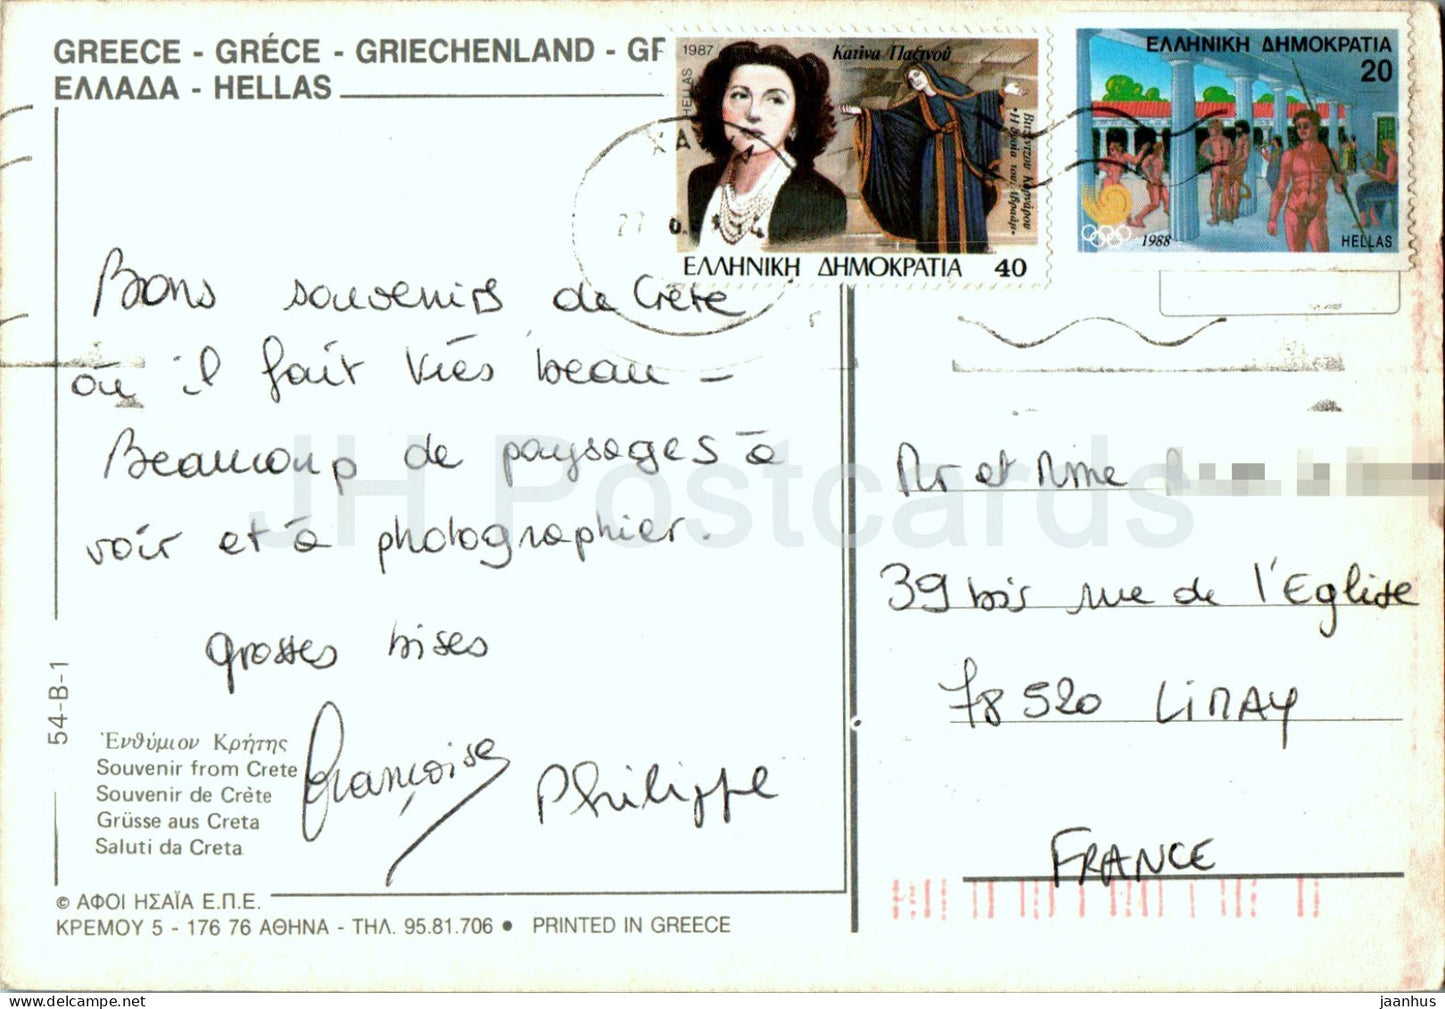 GREECE - GRÉCE - GRIECHENLAND - GR
ΕΛΛΑΔΑ - HELLAS
1987
HELLAS
Κατίνα Παξινού
Βιτσέντζου Κορνάρου
«Η θυσία του Αβραάμ»
ΕΛΛΗΝΙΚΗ ΔΗΜΟΚΡΑΤΙΑ 40
ΕΛΛΗΝΙΚΗ ΔΗΜΟΚΡΑΤΙΑ
20
1988
HELLAS
Bons souvenirs de Crète
où il fait très beau -
Beaucoup de paysages à
voir et à photographier.
Grosses bises
Françoise Philippe
Mr et Mme
39 bis rue de l'Eglise
78520 LIMAY
FRANCE
54-B-1
Ἐνθύμιον Κρήτης
Souvenir from Crete
Souvenir de Crète
Grüsse aus Creta
Saluti da Creta
© ΑΦΟΙ ΗΣΑΪΑ Ε.Π.Ε.
ΚΡΕΜΟΥ 5 - 176 76 ΑΘΗΝΑ - ΤΗΛ. 95.81.706 ● PRINTED IN GREECE
JH Postcards
jaanhus